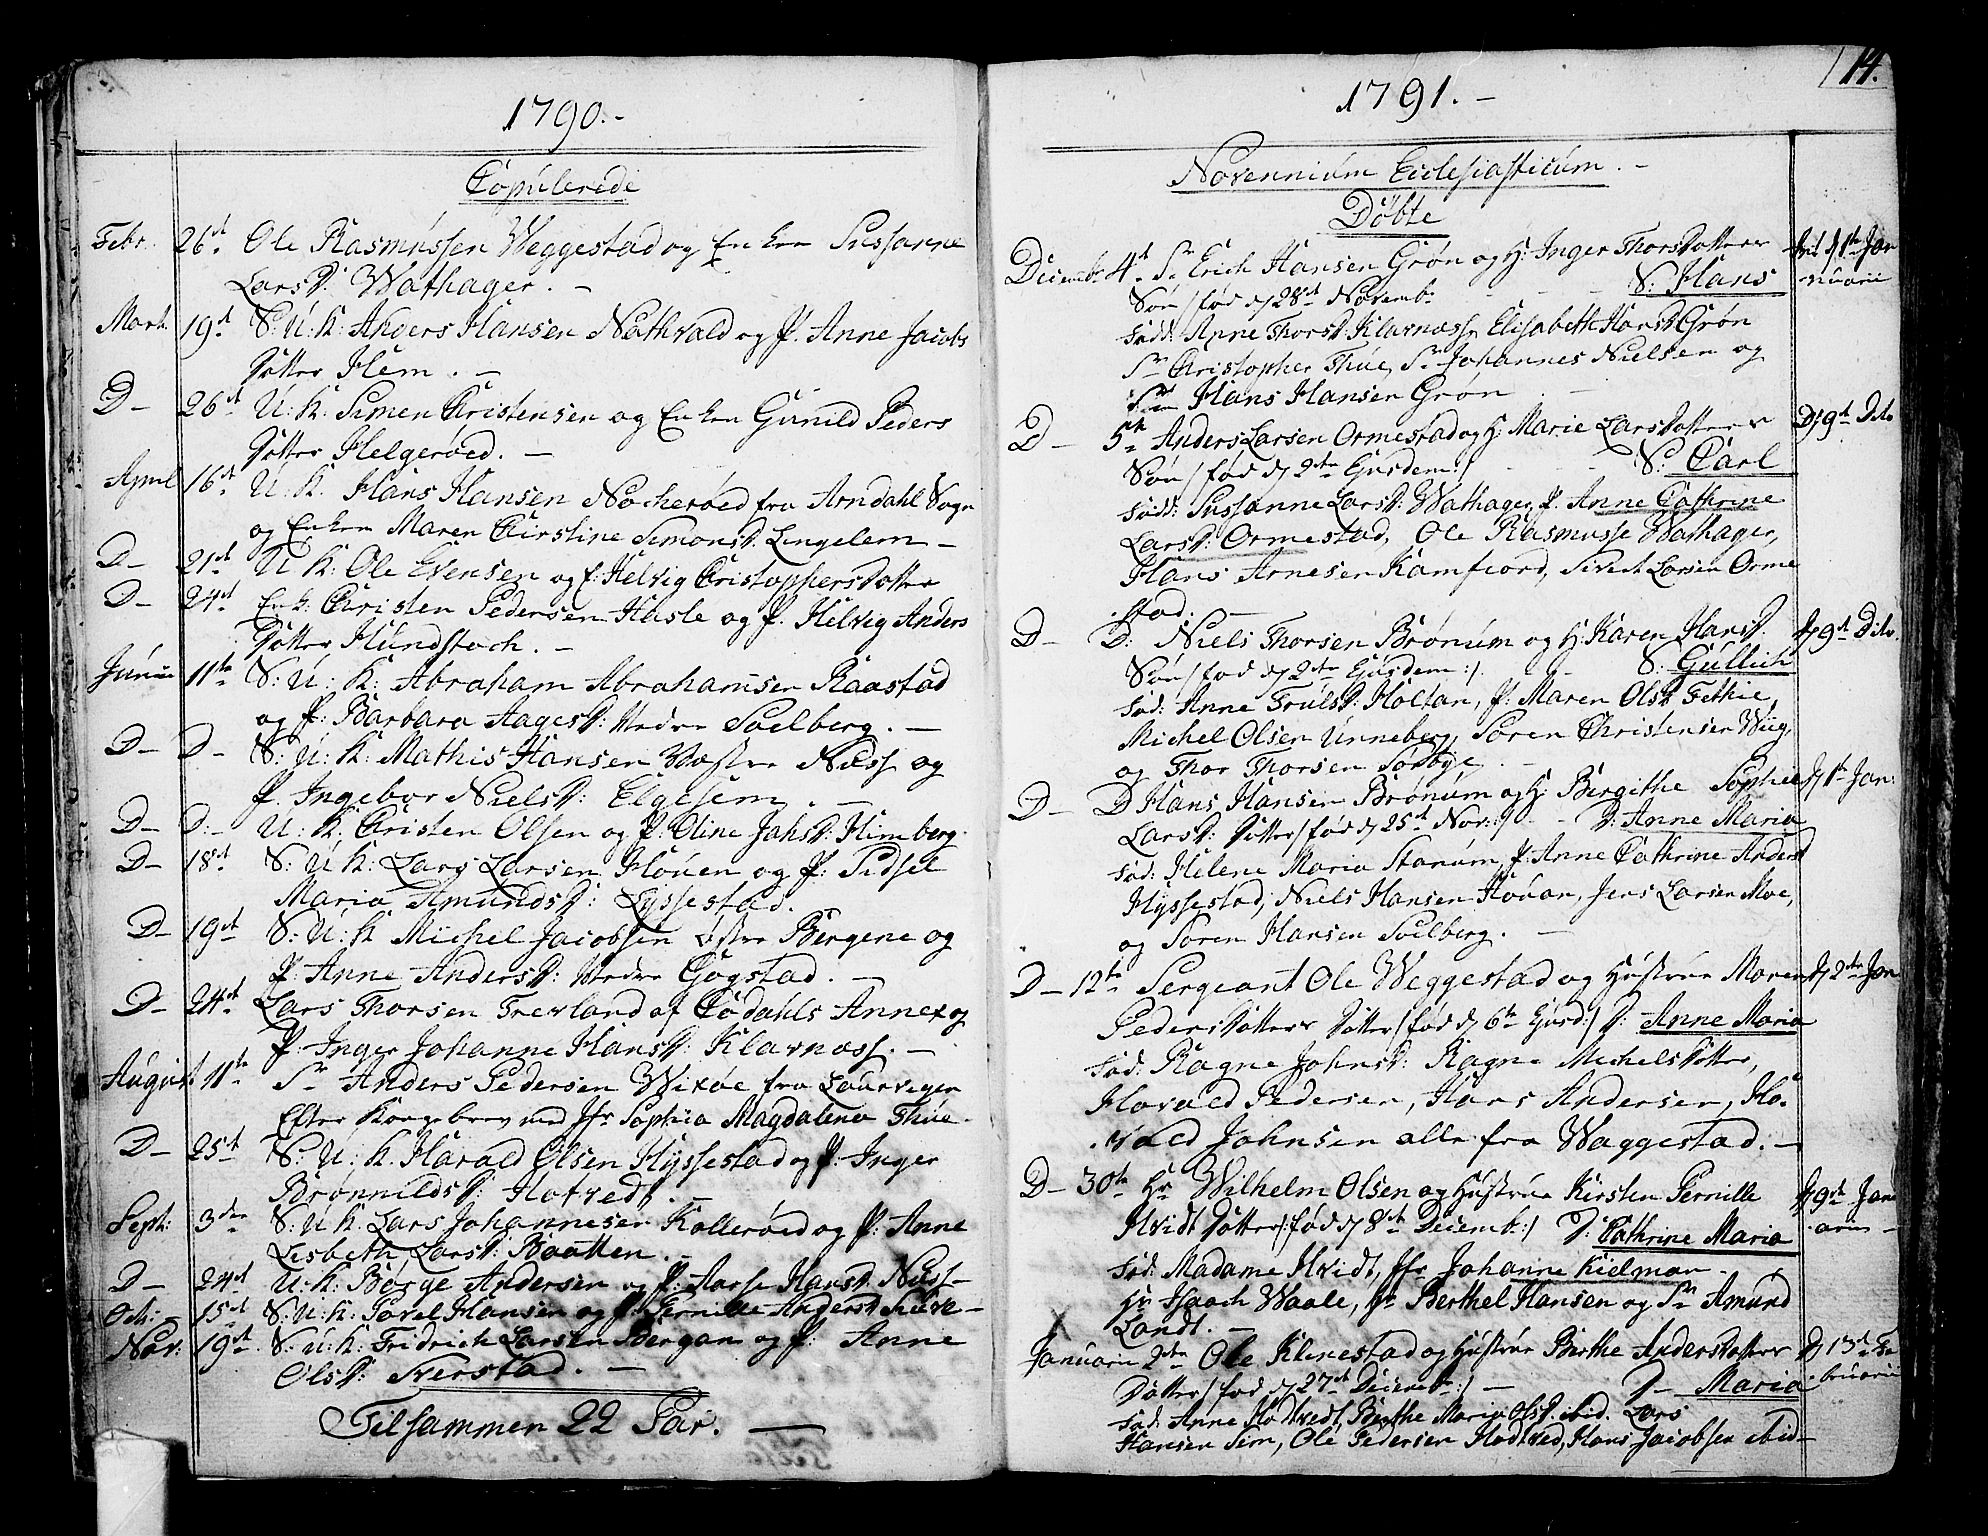 1790.-
Copulerede
Febr. 26d. Ole Rasmussen Weggestad og Enken Sussanne
Larsd: Wathager. -
Mart. 19d S: U: K: Anders Hansen Nathvald og P. Anne Jacobs
Dotter Hem. -
D- 26d. U: K. Simen Christensen og Enken Gunild Peders
Dotter Helgeröed. -
April 16d U: K. Hans Hansen Nacheröed fra Arndahl Sogn
og Enken Maren Kirstine Simonsd. Lingelem -
D- 21d U K: Ole Evensen og P: Helvig Christophersdotter
D- 24d Enk: Christen Pedersen Hasle og P. Helvig Anders
Dotter Hundstoch. -
Junii 11te S: U: K: Abraham Abrahamsen Raastad
og P: Barbara Aagesd: Nedre Soelberg. -
D- D- S: U: K: Mathis Hansen Vestre Næss og
P. Ingebor Nielsd: Elgesem. -
D- D:- U: K. Christen Olsen og P. Oline Jahsd: Himberg.
D- 18d S: U K: Lars Larsen Houen og P: Sidsel
Maria Amundsd: Lyssestad.
D- 19d S: U: K Michel Jacobsen østre Bergene og
P. Anne Andersd: Nedre Gogstad. -
D- 24d. Lars Thorsen Trevland af Codahls Annex og
P. Inger Johanne Hansd: Klavnæss. -
August 11te Sr Anders Pedersen Wixöe fra Laurvigen
Efter Kongebrev med Jfr Sophia Magdalena Thue.
D- 25d S: U: K. Harald Olsen Hyssestad og P: Inger
Brønnildsd: Hotvedt. -
Sept: 3die S: U K. Lars Johannesen Kalleröed og P: Anne
Lisbeth Larsd: Raatten. -
D- 24d. U: K: Børge Andersen og P: Aarse Hansd. Næss-
Oct: 15d S: U: K: Povel Hansen og P: Pernille Andersd
Nov: 19d. S: U: K: Fridrich Larsen Bergan og P: Anne
Olsd: Sverstad. -
Tilsammen 22 Par. -
14.
1791.-
Novennium Ecclesiasticum. -
Døbte
Decembr 4d. Sr Erich Hansen Grøn og H: Inger Thorsdotters 11te Jan
Søn /: fød d 28d Novembr - - S: Hans nuarii
Fad: Anne Thorsd: Klavnæss, Elisabeth Hansd Grøn
Sr Christopher Thue, Sr Johannes Nielsen og
Sr Hans Hansen Grøn -
D- 5te Anders Larsen Ormestad og H: Marie Larsdotters D 9d Dito
Søn /: fød d 2den Ejusdem :/ - - S: Carl
Fadd: Sussanne Larsd: Wathager, P. Anne Cathrine
Larsd: Ormestad, Ole Rasmusse Wathager,
Hans Arnesen Kamfiord, Sivert Larsen Orme
stad. -
D- D: Niels Thorsen Brønum og H: Karen Hansd. d 9d Dito.
Søn /: fød d 2den Ejusdem :/ - S: Gullich
Fad: Anne Trulsd: Holtan, P: Maren Olsd Fethie,
Michel Olsen Unneberg, Søren Christensen Wiig,
og Thor Thorsen Sørbye. -
D- D Hans Hansen Brønum og H: Bergithe Sophie d 1te Jan:
Larsd: Dotter /: fød d 25d Nov: :/ - - D: Anne Maria
Fad: Helene Maria Starum, P. Anne Cathrine Andersd
Hyssestad, Niels Hansen Houan, Jens Larsen Moe,
og Søren Hansen Soelberg. -
D- 12te Sergeant Ole Weggestad og Hustrue Maren d 2den Jan
Pedersdotters Dotter /: fød d 6te Ejusd :/ D: Anne Maria
Fad: Ragne Johnsd: Ragne Michelsdotter,
Havald Pedersen, Hans Andersen, Ha-
vald Johnsen alle fra Waggestad. -
D- 30te Hr Wilhelm Olsen og Hustrue Kirsten Pernille d 9d Janu
Hvidt Dotter /: fød d 8d Decemb: :/ D: Cathrine Maria arii -
Fad: Madame Hvidt, Jfr Johanne Kielman -
Hr Isaach Waale, Hr Berthel Hansen og Sr Amund
Landt. -
X
Januarii 2den Ole Klinestad og Hustrue Birthe Andersdotters d 13d Fe
Dotter /: fød d 27d Decemb: :/ - D- Maria bruarii
Fad: Anne Hodtvedt, Berthe Maria Olsd. ibid. Lars
Hansen Sem, Ole Pedersen Hodtved, Hans Jacobsen ibid-